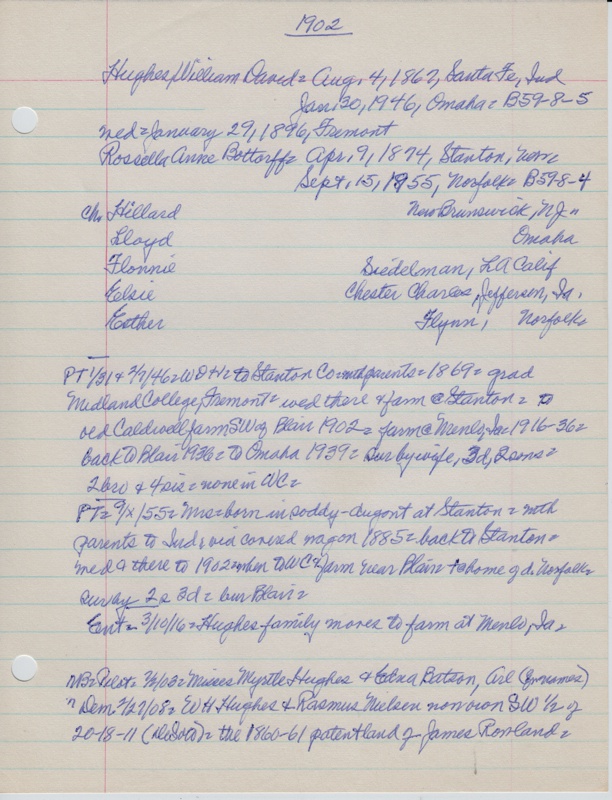 1902
Hughes, William David = Aug. 4, 1867, Santa Fe, Ind
Jan. 30, 1946, Omaha = B59-8-5
wed = January 29, 1896, Fremont
Rossella Anne Bottorff = Apr. 9, 1874, Stanton,
Sept. 15, 1955, Norfolk = B59-8-4
ch. Hillard New Brunswick, NJ =
Lloyd Omaha
Flonnie Siedelman, LA Calif
Elsie Chester Charles, Jefferson, Ia.
Esther Flynn, Norfolk =
PT 1/31 + 2/7/46 = WDH = to Stanton Co = parents = 1869 = grad
Midland College, Fremont = wed there & farm @ Stanton = to
old Caldwell farm SW of Blair 1902 = farm @ Menlo, Ia = 1916-36 =
back to Blair 1936 = to Omaha 1939 = sur by wife, 3d, 2 sons =
2 bro & 4 sis = none in WC =
PT = 9/ /55 = Mrs = born in soddy-dugout at Stanton = with
parents to Ind via covered wagon 1885 = back to Stanton =
med & there to 1902 when to WC = farm near Blair = home of d. Norfolk =
surv by 2 s 3d = bur Blair =
Ent = 3/10/16 = Hughes family moves to farm at Menlo, Ia =
NB = Pilot = /03 = Misses Myrtle Hughes & Edna Batson, Arl (Grnames)
" Dem 2/27/08 = WH Hughes & Rasmus Nielsen now own SW 1/2 of
20-18-11 (DeSoto) = the 1860-61 patent land of James Rowland =